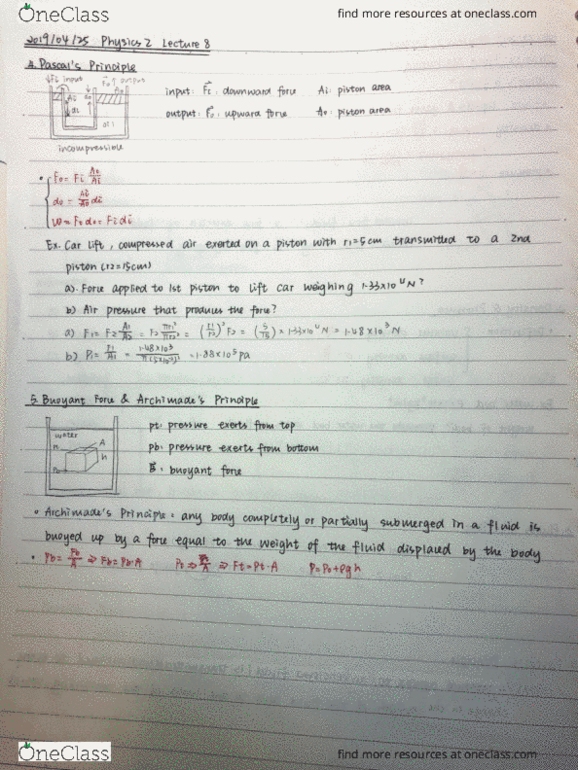 OneClass
find more resources at oneclass.com
2019/04/25 Physics 2 Lecture 8
4. Pascal's Principle
↓Fi input Fo↑ output
Ai
Ao
di
do
oil
incompressible
input: Fi. downward force Ai: piston area
output: Fo. upward force Ao: piston area
• Fo = Fi Ao/Ai
do = Ai/Ao di
W = Fo do = Fi di
Ex. Car lift, compressed air exerted on a piston with r1=5cm transmitted to a 2nd
piston (r2=15cm)
a). Force applied to 1st piston to lift car weighing 1.33×10⁴N?
b) Air pressure that produces the force?
a) F1 = F2 A1/A2 = F2 πr1²/πr2² = (r1/r2)² F2 = (5/15) × 1.33×10⁴N = 1.48×10³N
b) P1 = F1/A1 = 1.48×10³/π(5×10⁻²)² = 1.88×10⁵pa
5. Buoyant Force & Archimade's Principle
water
A
h
pt: pressure exerts from top
pb: pressure exerts from bottom
B: buoyant force
• Archimade's Principle: any body completely or partially submerged in a fluid is
buoyed up by a force equal to the weight of the fluid displaced by the body
• Pb = Fb/A ⇒ Fb = Pb·A Pt ⇒ Ft/A ⇒ Ft = Pt·A P = P0+ρgh
OneClass
find more resources at oneclass.com